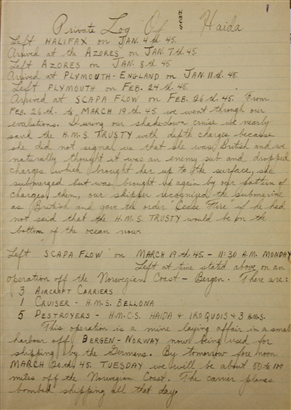 1
Private Log Of H.M.C.S. Haida
Left HALIFAX on JAN. 4th 45.
Arrived at the AZORES on JAN 7th 45
Left AZORES on JAN. 9th 45
Arrived at PLYMOUTH - ENGLAND on JAN 11th 45.
Left PLYMOUTH on FEB. 24th 45.
Arrived at SCAPA FLOW on FEB. 26th 45. From
FEB. 26th to MARCH 19th 45 we went through our
evolutions. During our shakedown cruise we nearly
sank the H.M.S TRUSTY with depth charges because
she did not signal us that she was British and we
naturally thought it was an enemy sub and dropped
charges which brought her up to the surface, she
submerged but was brought up again by our pattern of
charges, then, our skipper recognized the submarine
as British and gave the order "Cease Fire" if he had
not said that the H.M.S. TRUSTY would be on the
bottom of the ocean now.
Left SCAPA FLOW on MARCH 19th 45 - 11:30 A.M. MONDAY
Left at time stated above on an
operation off the Norwegian Coast - Bergen. There are:
3 AIRCRAFT CARRIERS
1 CRUISER - H.M.S. BELLONA
5 DESTROYERS - H.M.C.S. HAIDA & IROQUOIS & 3
This operation is a mine laying affair in a small
harbour off BERGEN - NORWAY now being used for
shipping by the Germans. By tomorrow fore noon
MARCH 20th 45 TUESDAY we will be about
miles off the Norwegian Coast. The carrier planes
bombed shipping all that day.